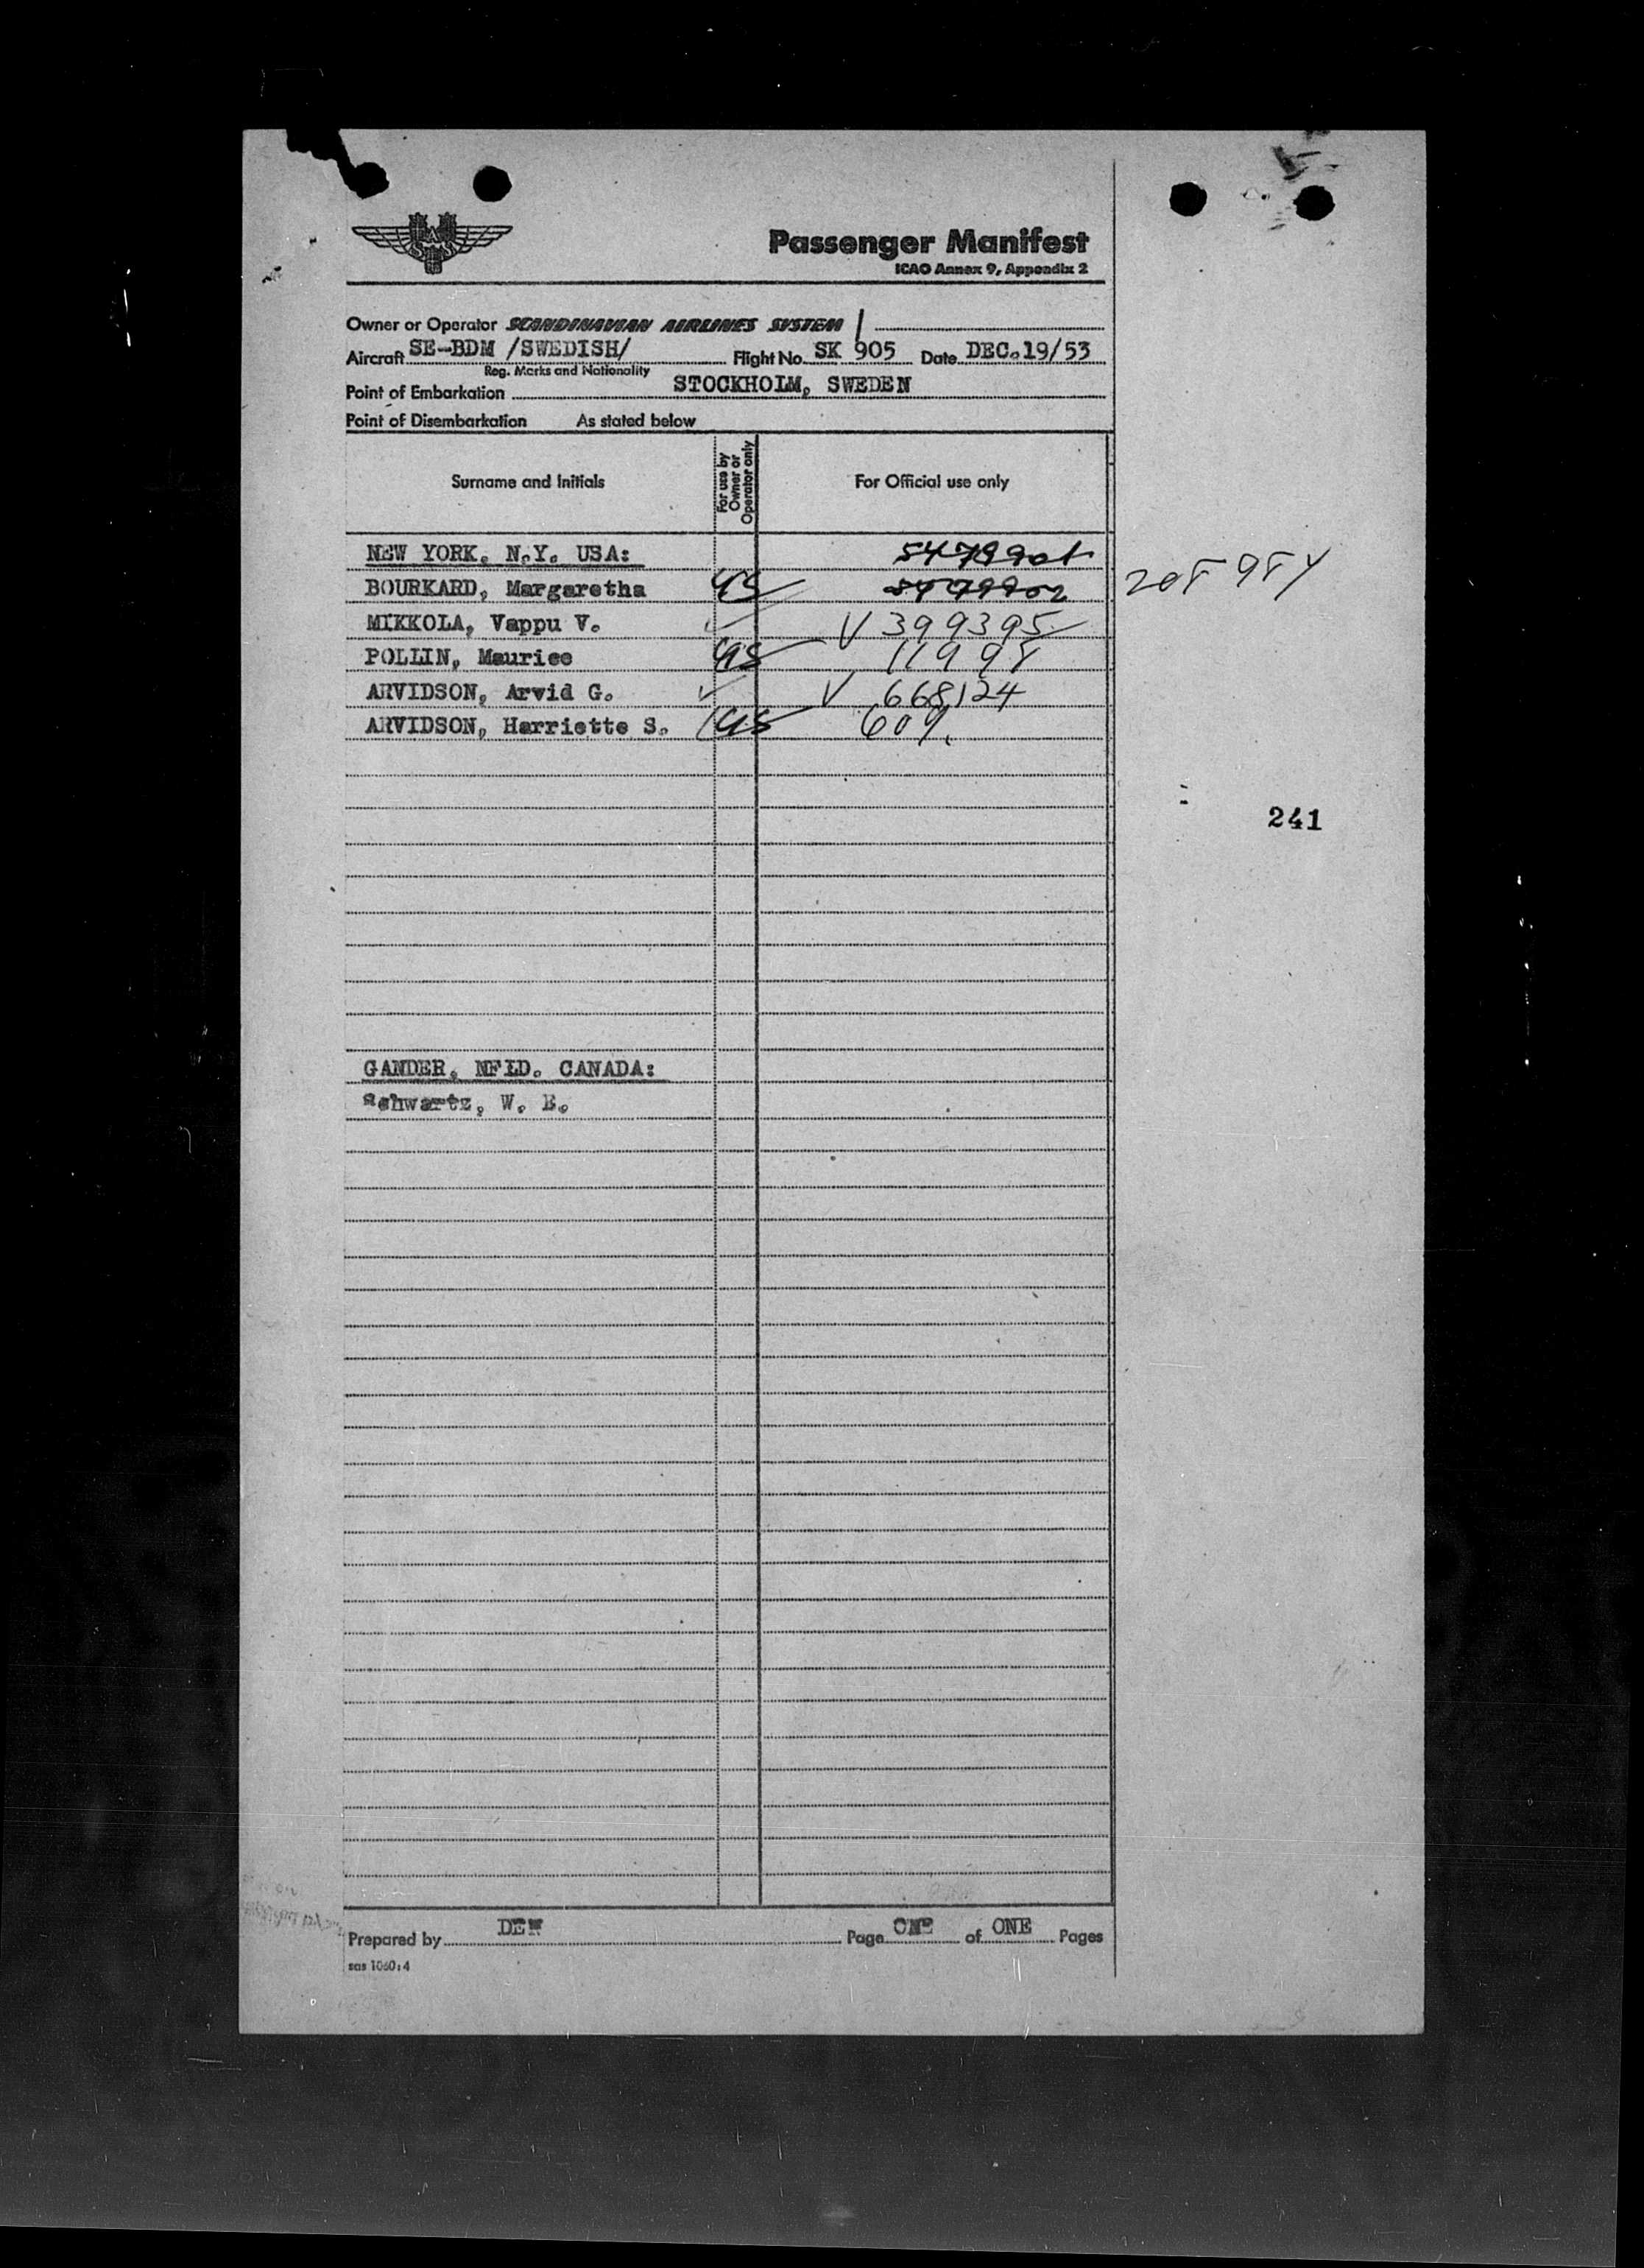 Passenger Manifest
ICAO Annex 9, Appendix 2
Owner or Operator SCANDINAVIAN AIRLINES SYSTEM
Aircraft SE-BDM /SWEDISH/ Flight No. SK 905 Date DEC. 19/53
Reg. Marks and Nationality
Point of Embarkation STOCKHOLM, SWEDEN
Point of Disembarkation As stated below
Surname and Initials For use by Owner or Operator only For Official use only
NEW YORK, N.Y. USA:
BOURKARD, Margaretha US
MIKKOLA, Vappu V. V 399395
POLLIN, Maurice US
ARVIDSON, Arvid G. V 668124
ARVIDSON, Harriette S. US
241
GANDER, NFLD. CANADA:
Schwartz, W. E.
Prepared by DEW Page ONE of ONE Pages
sas 1060:4